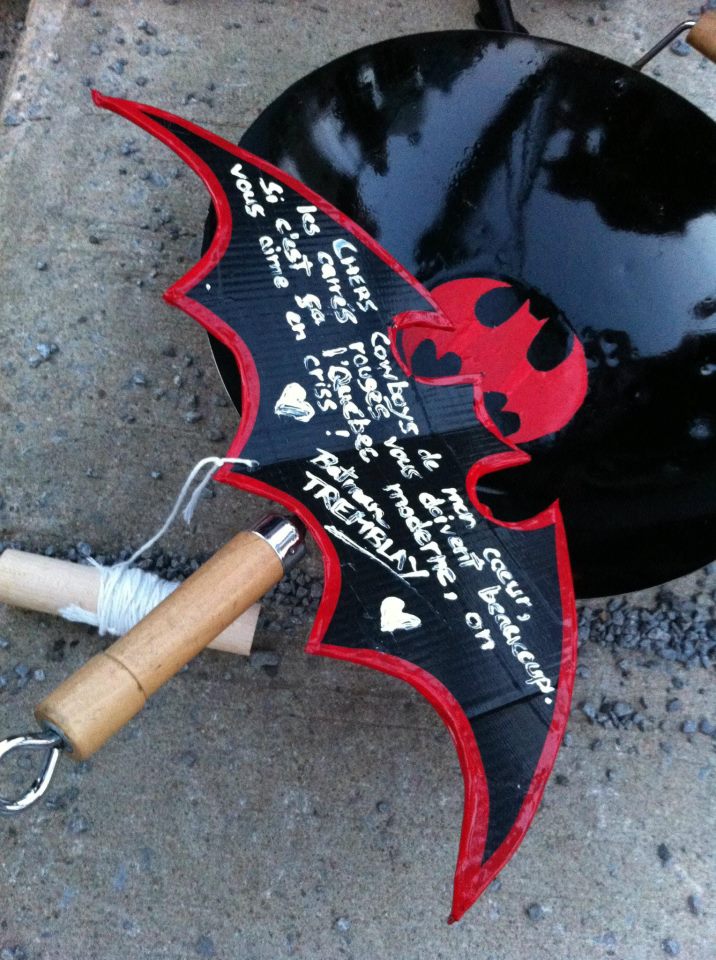 CHERS Cowboys de mon coeur,
les carrés rouges vous doivent beaucoup.
Si c'est ça l'Québec moderne, on
vous aime en criss !
Batman
TREMBLAY